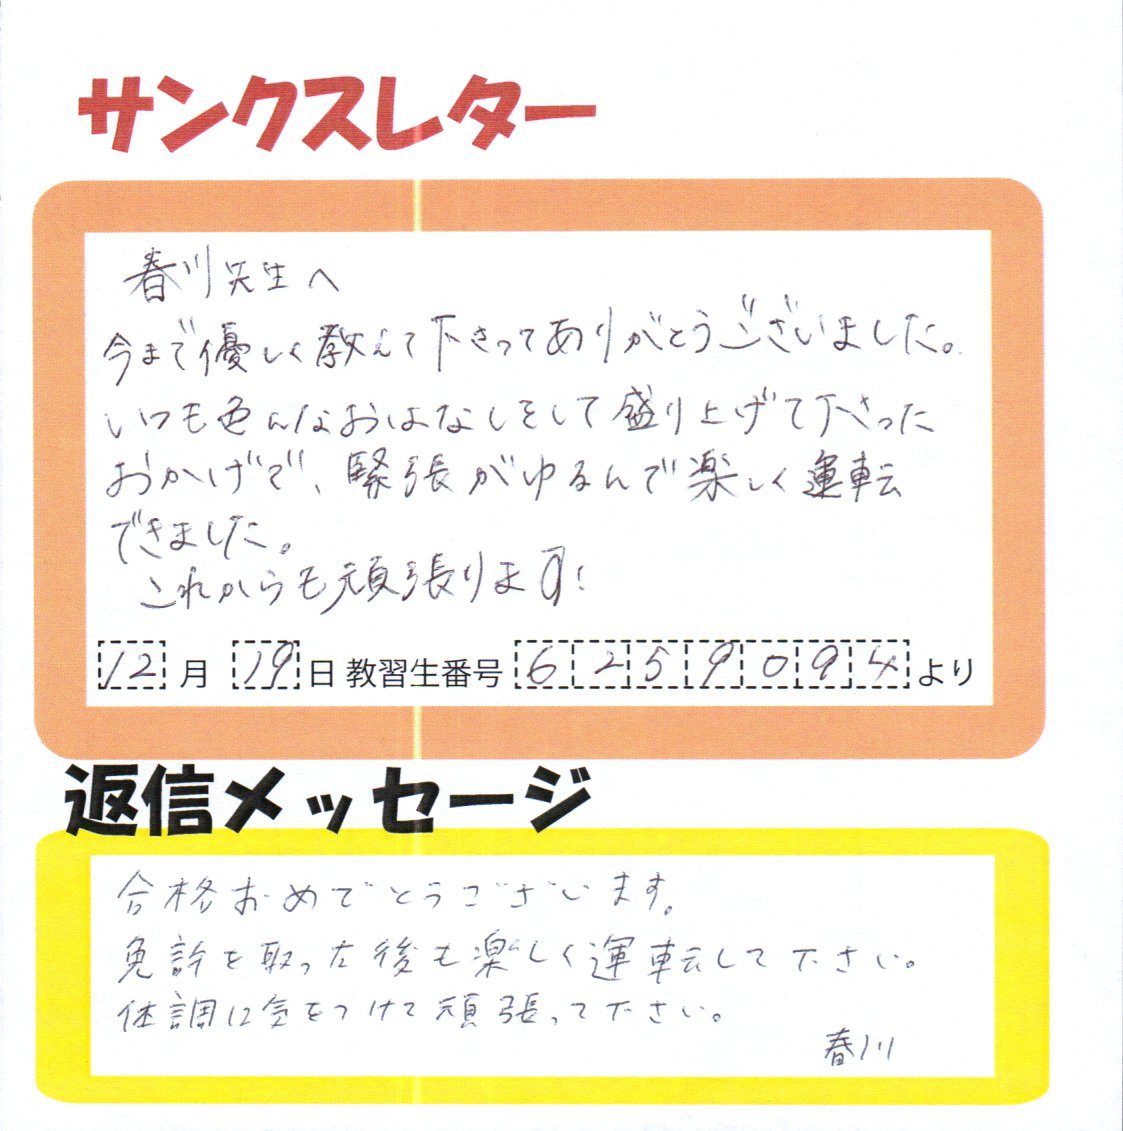 サンクスレター
春川先生へ
今まで優しく教えて下さってありがとうございました。
いつも色んなおはなしをして盛り上げて下さった
おかげで、緊張がゆるんで楽しく運転
できました。
これからも頑張ります!
12月 19日 教習生番号 6259094より
返信メッセージ
合格おめでとうございます。
免許を取った後も楽しく運転して下さい。
体調に気をつけて頑張って下さい。
春川